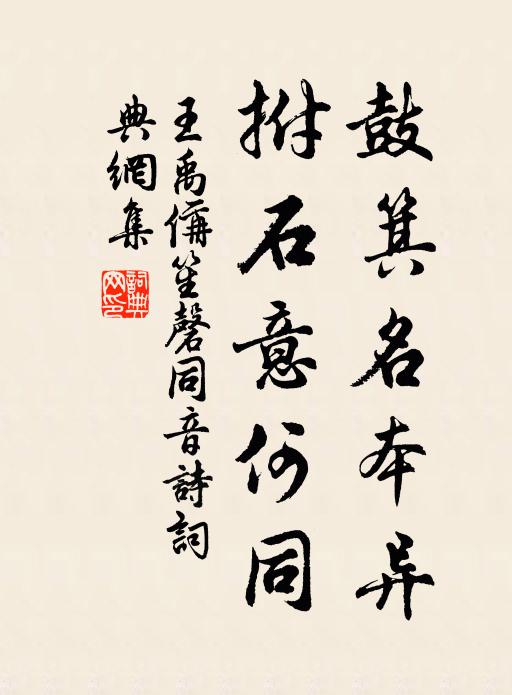 鼓箕名本异
拊石意何同
王禹偁笙磬同音詩詞
典網集
詞典网印